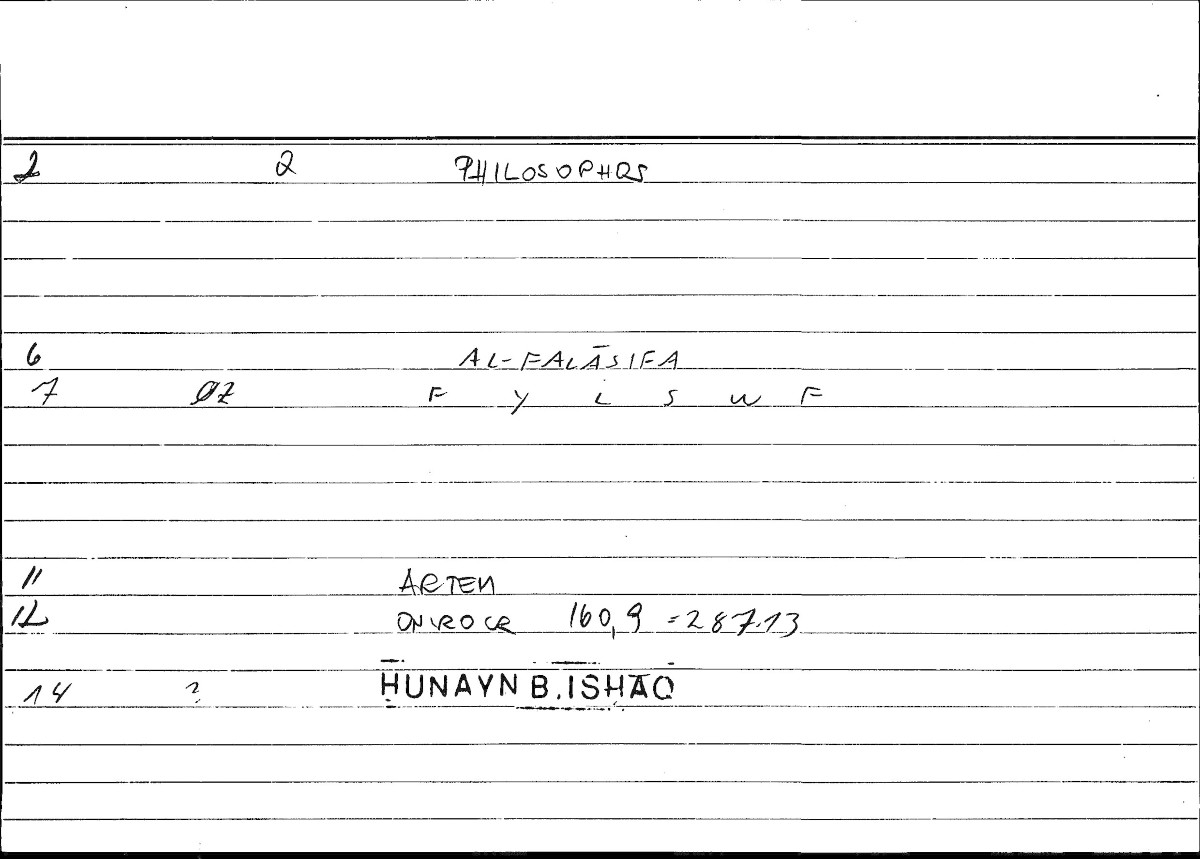 2 2 PHILOSOPHOS
6 AL-FALĀSIFA
7 ØZ F Y L S W F
11 ARTEM
12 ONIROCR 160,9 = 287.13
14 2 ḤUNAYN B. ISḤĀQ